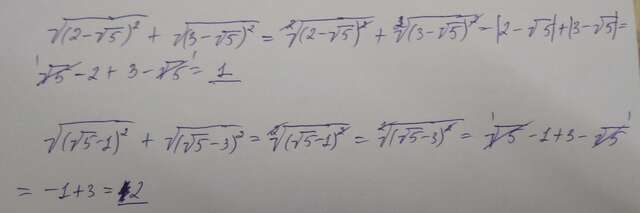 √(2-√5)² + √(3-√5)² = ²√(2-√5)² + ²√(3-√5)² = |2-√5|+|3-√5|=
√5 - 2 + 3 - √5 = 1
√(√5-1)² + √(√5-3)² = ²√(√5-1)² = ²√(√5-3)² = √5 - 1 + 3 - √5
= -1+3 = 2